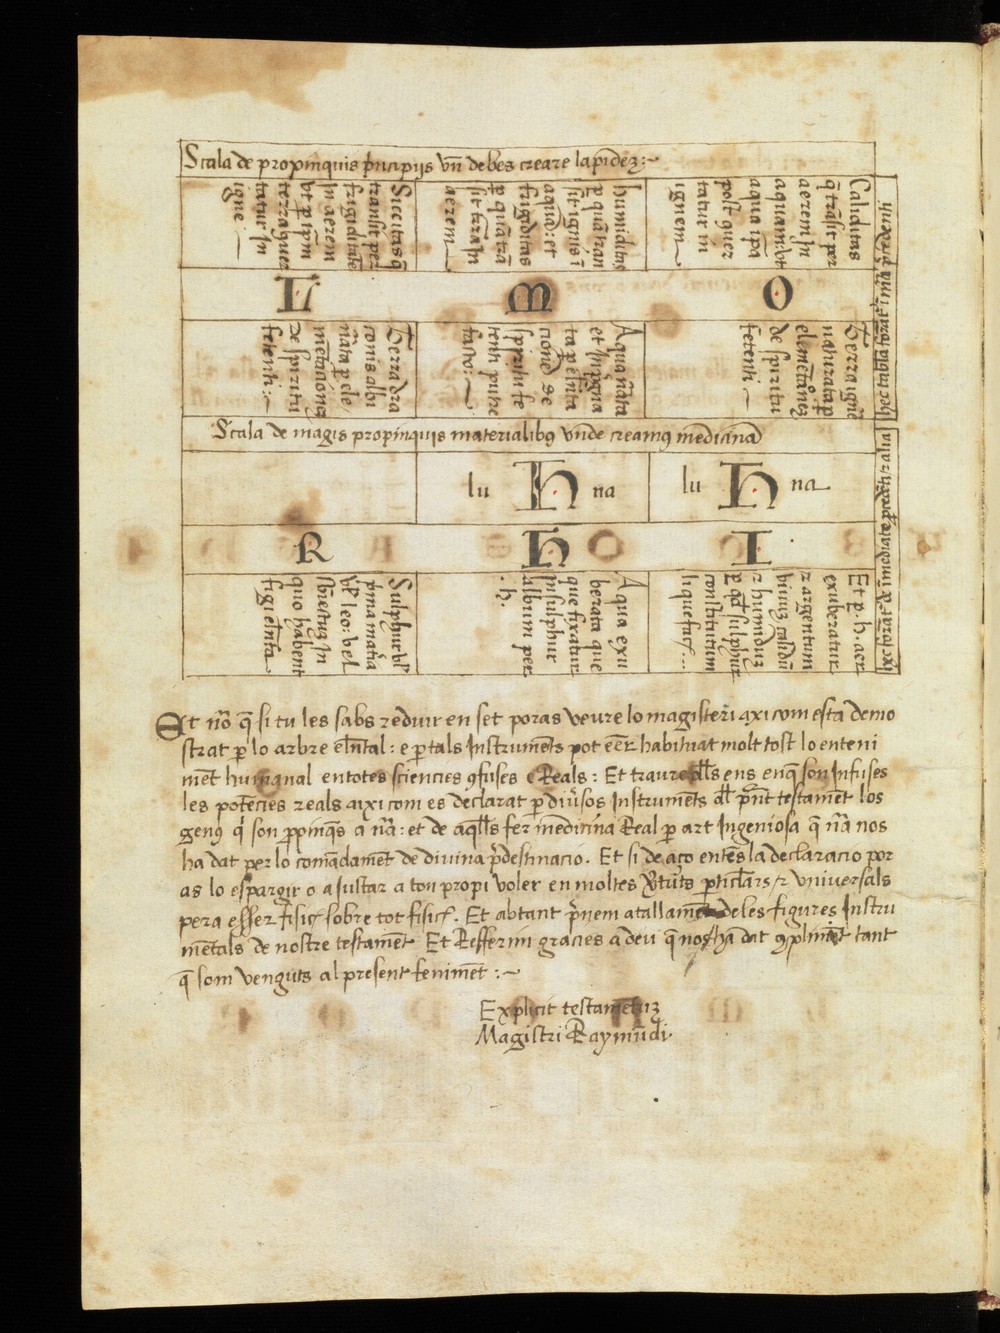 Scala de propinquis prīcipijs vn̄ debes creare lapidez:~
Siccitas q̄
transit per
frigiditatē
In aerem
vt p ip̄m
terra quer
tatur In
igne.~
humiditas
p quā tran
sit ignis ī
aquā: et
frigiditas
p quā trā
sit terra In
aerem~
Caliditas
q̄ trāsit per
aerem In
aquam: vt
aqua ip̄a
post quer
tatur in
ignem~
L M O
Terra dra
conis albi
nāta p ele
mētationē
de spiritu
fetenti:~
Aqua nāta
et Inp̄gna
ta p elēnta
cionē de
spiritu fe
tenti putre
facto:~
Terra igne
naturata p
elemētānez
de spiritu
fetenti~
Scala de magis propinquis materialibꝯ vnde creamꝯ medicinā
lu H na lu H na
R H I
Sulphur vl̄
prima materia
vl̄ leo: vel
sbiectuz In
quo habent
figi elēnta
Aqua exu
berata que
que fixatur
In sulphur
album per
.h.
Et p. h. aer
exuberatur
⁊ argentum
viuuz calidū
⁊ humiduz
p qd sulphur
constitutum
liquefact...
Et nō q̄ si tu les sabs reduir en set poras veure lo magisteri axi com esta demo
strat p lo arbre elēntal: e p tals Instrumēts pot eēr habituat molt tost lo enteni
mēt humanal en totes sciencies ꝯfuses e Reals: Et traure dlls ens en q̄ son Infuses
les potēcies reals aixi com es declarat p diūsos Instrumēts dl p̄nt testamēt los
genꝯ q̄ son ppinqs a nā: et de aqlls fer medicina Real p art Ingeniosa q̄ nā nos
ha dat per lo comādamēt de diuina p̄destinacio. Et si de aço entēs la declaracio por
as lo espargir o aiustar a ton propi voler en moltes v̄tuts pticlars ⁊ vniuersals
pera esser fisic sobre tot fisic. Et abtant p̄nem atallamēt de les figures Instru
mētals de nostre testamēt Et Refferim gracies a deu q̄ nos ha dat ꝯplimēt tant
q̄ som venguts al present fenimēt:~
Explicit testamētuz
Magistri Raymūdi